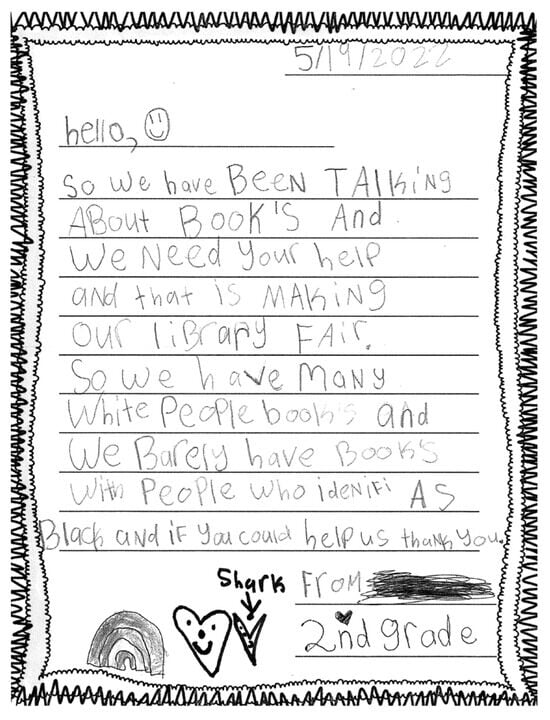 5/19/2022
hello,
So We have BEEN TAlKiNg
ABout BOOK'S And
We Need Your help
and that is MAKiNg
Our liBrary FAir.
So we have Many
White PeoPle book's and
We Barely have Book's
With PeoPle Who idenifi AS
Black and iF You could help us thank You.
Shark
From
2nd grade